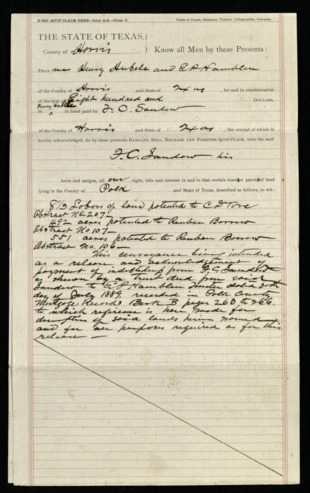 THE STATE OF TEXAS,
County of Harris
Know all Men by these Presents:
THAT we Henry and E P Hamblen
of the County of Harris and State of Texas for and in consideration
of the sum of Eight hundred and DOLLARS,
in hand paid by F. C. Sandow
of the County of Harris and State of Texas, the receipt of which is
hereby acknowledged, do by these presents BARGAIN, SELL, RELEASE, AND FOREVER QUIT-CLAIM, unto the said
F. C. Sandow his
heirs and assigns, all our right, title and interest in and to that certain tract or parcel of land
lying in the County of Polk and State of Texas, described as follows, to wit:
8 1/2 Labors of land patented to C D
Abstract No 207—
acres patented to Reuben Barrow
Abstract No 107—
551 acres patented to Reuben Barrow
Abstract No. 106—
This conveyance being intended
as a release and acknowledgement of
payment of indebtedness from F. C. Sandow
as shown by a trust deed from said
Sandow to E. P. Hamblen Trustee dated
day of July 1889 recorded in Polk County
Mortgage Record Book B pages 260 to 264
to which reference is here made for
description of said lands herein named
and for all purposes required as for this
release —